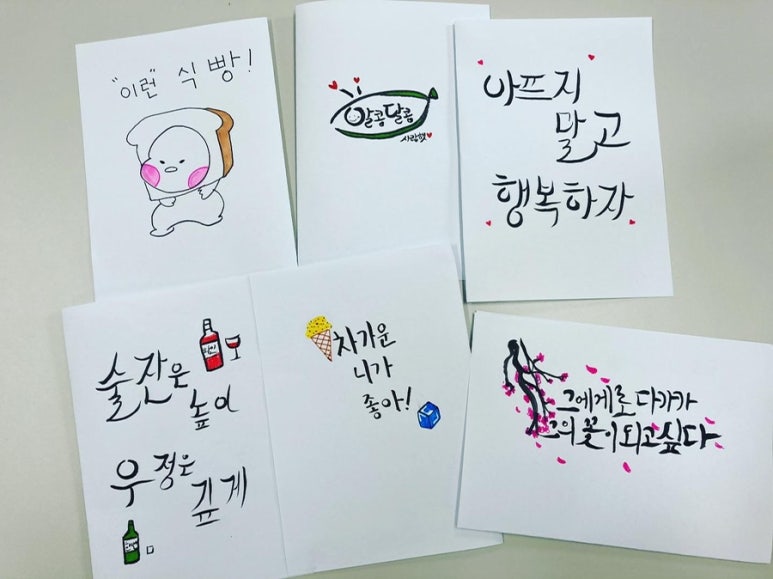 "이런" 식빵!
알콩달콩
사랑행
아프지
말고
행복하자
술잔은
높이
우정은
깊게
차가운
니가
좋아!
그에게로 다가가
그의 꽃이 되고 싶다